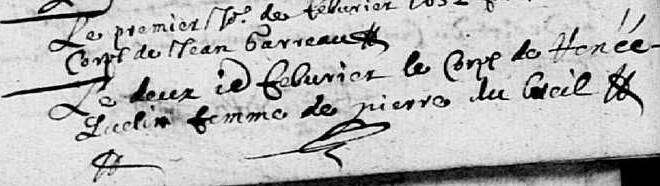 Le premier Jo. de febvrier 1652
Corps de Jean Garreau
Le deux id febvrier le Corps de Renée
femme de pierre du breil